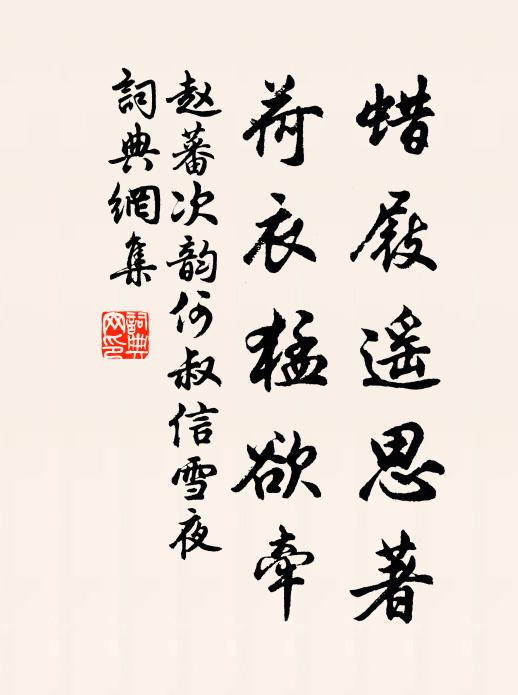 蜡屐遥思著
荷衣猛欲牵
赵蕃次韵何叔信雪夜
詞典網集
詞典网印